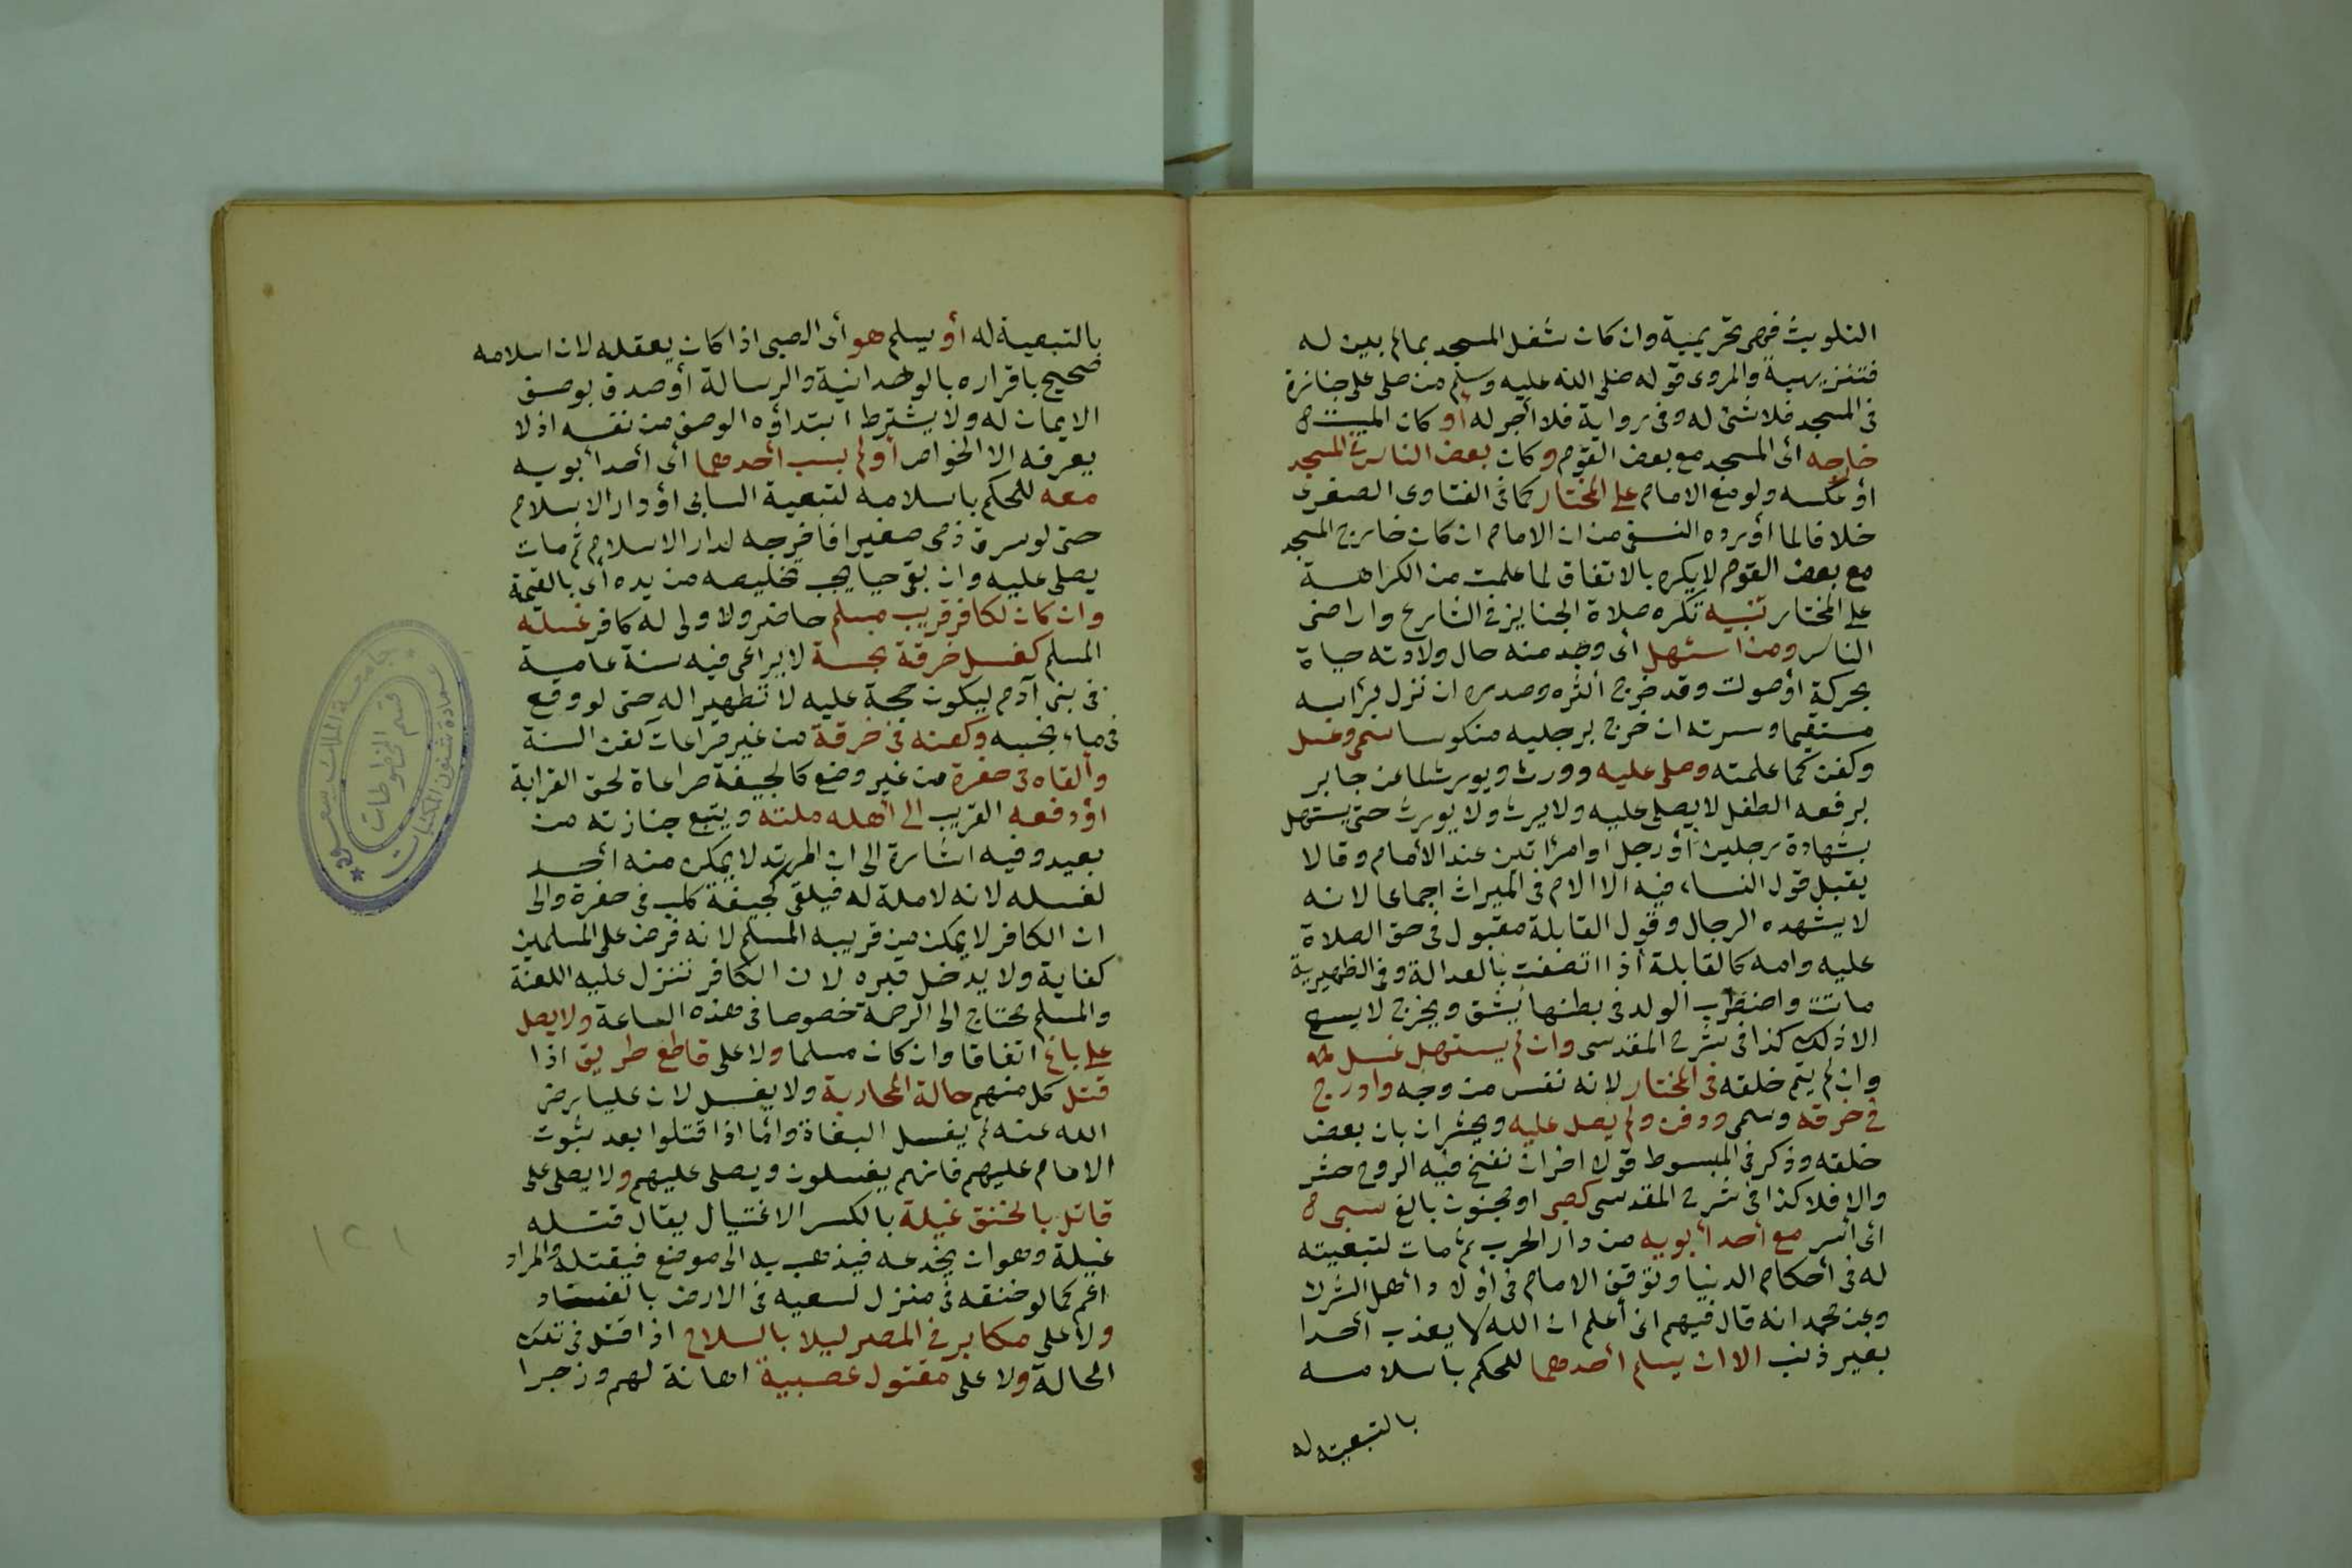 التلويث فهى تحريمية وان كان شغل المسجد بما لم يبن له
فتنزيهية والمروى قوله صلى الله عليه وسلم من صلى على جنازة
فى المسجد فلا شئ له وفى رواية فلا أجر له أو كان الميت
خارجه أى المسجد مع بعض القوم وكان بعض الناس فى المسجد
أو عكسه ولو مع الامام على المختار كما فى الفتاوى الصغرى
خلافا لما أورده النسفى من ان الامام ان كان خارج المسجد
مع بعض القوم لا يكره بالاتفاق لما علمت من الكراهة
على المختار تنبيه تكره صلاة الجنايز فى الشارع واراضى
الناس ومن استهل أى وجد منه حال ولادته حياة
بحركة أو صوت وقد خرج أكثره وصدره ان نزل برأسه
مستقيما وسرته ان خرج برجليه منكوسا سمى وغسل
وكفن كما علمته وصلى عليه وورث ويورث لما عن جابر
يرفعه الطفل لا يصلى عليه ولا يرث ولا يورث حتى يستهل
بشهادة رجلين أو رجل وامرأتين عند الأمام وقالا
يقبل قول النساء فيه الا الام فى الميراث اجماعا لانه
لا يشهده الرجال وقول القابلة مقبول فى حق الصلاة
عليه وامه كالقابلة أذا اتصفت بالعدالة وفى الظهيرية
ماتت واضطرب الولد فى بطنها يشق ويخرج لا يسع
الا ذلك كذا فى شرح المقدسى وان لم يستهل غسل
وان لم يتم خلقه فى المختار لانه نفس من وجه وادرج
فى خرقة وسمى ودفن ولم يصل عليه ويحشر ان بان بعض
خلقه وذكر فى المبسوط قولا اخر ان نفخ فيه الروح حشر
والا فلا كذا فى شرح المقدسى كصبى او مجنون بالغ سبى
أى أسر مع أحد أبويه من دار الحرب ثم مات لتبعيته
له فى أحكام الدنيا وتوقف الامام فى أولاد أهل الشرك
وعن محمد انه قال فيهم انى أعلم ان الله لا يعذب أحدا
بغير ذنب الا ان يسلم أحدهما للحكم باسلامه
بالتبعية له
بالتبعية له أو يسلم هو أى الصبى اذا كان يعقله لان اسلامه
صحيح باقراره بالوحدانية والرسالة أو صدق بوصف
الايمان له ولا يشترط ابتداؤه الوصف من نفسه اذ لا
يعرفه الا الخواص أو لم يسب أحدهما أى أحد أبويه
معه للحكم باسلامه لتبعية السابى أو دار الاسلام
حتى لو سرق ذمى صغيرا فاخرجه لدار الاسلام ثم مات
يصلى عليه وان بقى حيا يجب تخليصه من يده أى بالقيمة
وان كان لكافر قريب مسلم حاضر ولا ولى له كافر غسله
المسلم كغسل خرقة نجسة لا يراعى فيه سنة عامة
فى بنى آدم ليكون حجة عليه لا تطهيرا له حتى لو وقع
فى ماء نجسه وكفنه فى خرقة من غير مراعات كفن السنة
وألقاه فى حفرة من غير وضع كالجيفة مراعاة لحق القرابة
أو دفعه القريب الى أهله ملته ويتبع جنازته من
بعيد وفيه اشارة الى ان المرتد لا يمكن منه أحد
لغسله لانه لا ملة له فيلقى كجيفة كلب فى حفرة والى
ان الكافر لا يمكن من قريبه المسلم لانه فرض على المسلمين
كفاية ولا يدخل قبره لان الكافر تنزل عليه اللعنة
والمسلم يحتاج الى الرحمة خصوصا فى هذه الساعة ولا يصلى
على باغ اتفاقا وان كان مسلما ولا على قاطع طريق اذا
قتل كل منهم حالة المحاربة ولا يغسل لان عليا رضى
الله عنه لم يغسل البغاة وأما اذا قتلوا بعد ثبوت
الامام عليهم فانهم يغسلون ويصلى عليهم ولا يصلى على
قاتل بالخنق غيلة بالكسر الاغتيال يقال قتله
غيلة وهو ان يخدعه فيذهب به الى موضع فيقتله والمراد
اعم كما لو خنقه فى منزل لسعيه فى الارض بالفساد
ولا على مكابر فى المصر ليلا بالسلاح اذا قتل فى تلك
الحالة ولا على مقتول عصبية اهانة لهم وزجرا
جامعة الملك سعود
عمادة شئون المكتبات
قسم المخطوطات
١٢١